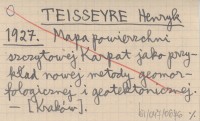 TEISSEYRE Henryk
1927. Mapa powierzchni
szczytowej Karpat jako przy-
kład nowej metody geomor-
fologicznej i geotektonicznej.
- [Kraków].